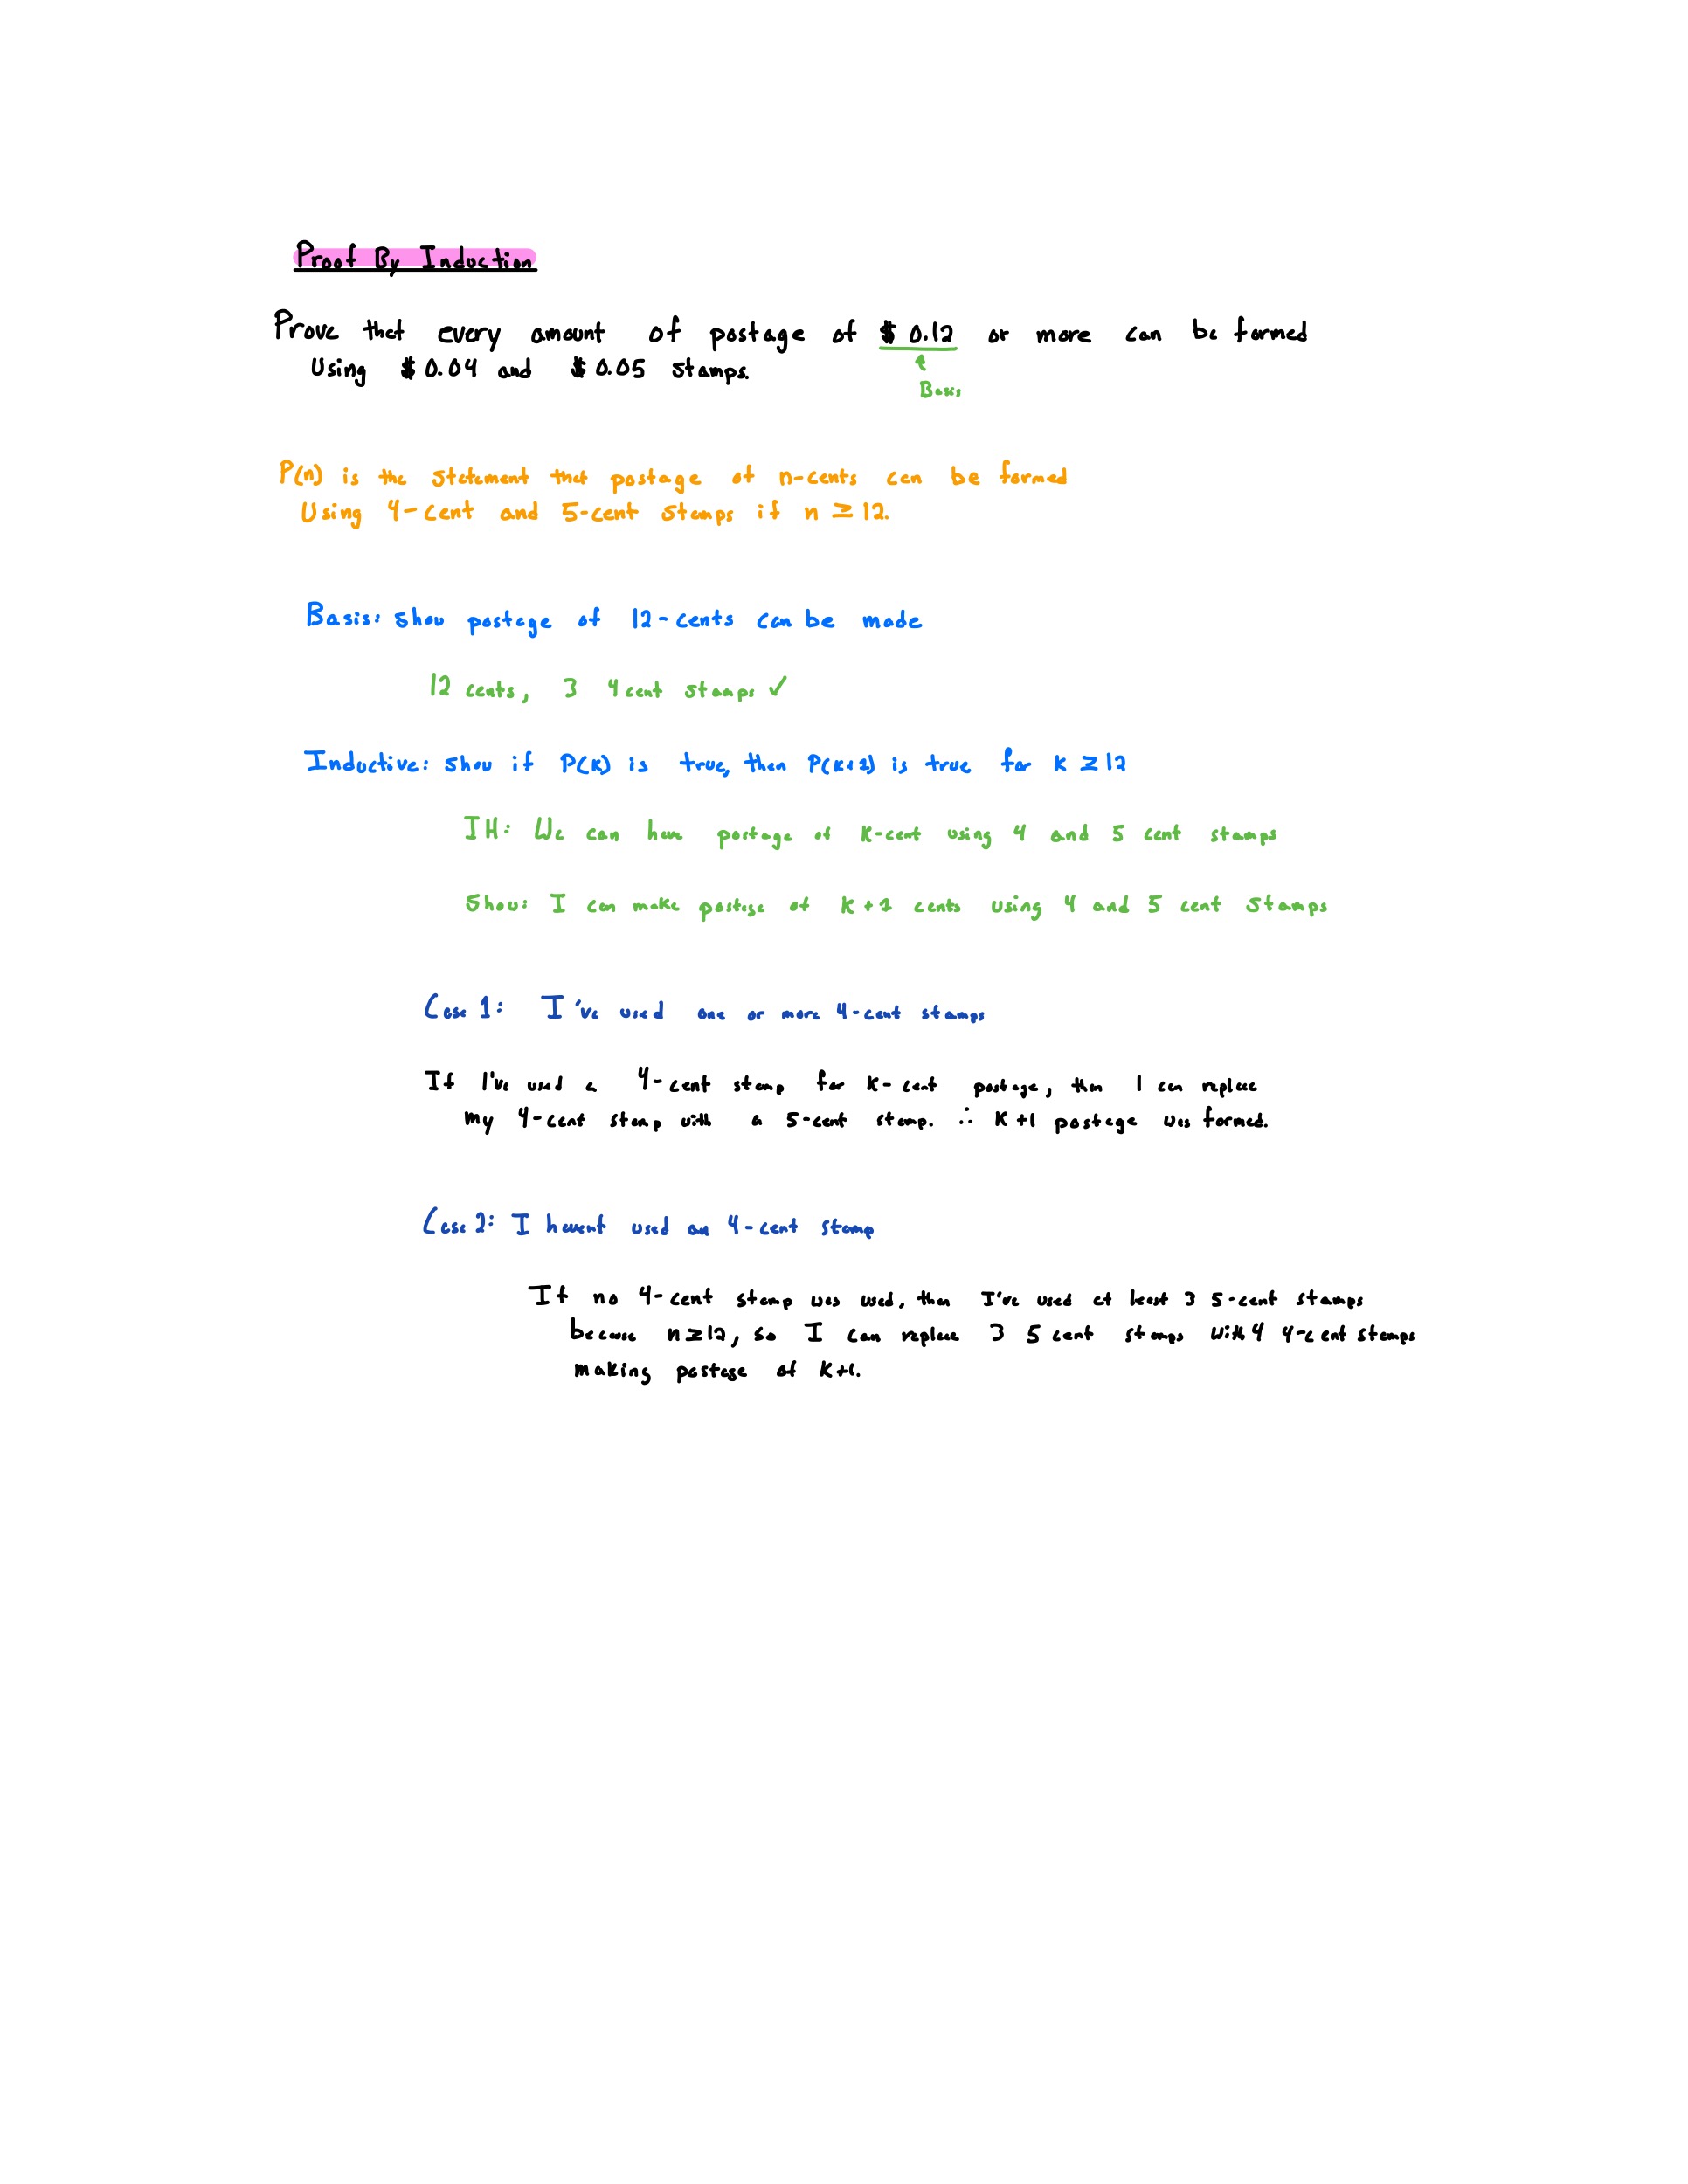 Proof By Induction
Prove that every amount of postage of $ 0.12 or more can be formed
Using $ 0.04 and $ 0.05 stamps.
Basis
P(n) is the statement that postage of n-cents can be formed
Using 4-cent and 5-cent stamps if n ≥ 12.
Basis: Show postage of 12-cents can be made
12 cents, 3 4cent stamps ✓
Inductive: Show if P(k) is true, then P(k+1) is true for k ≥ 12
IH: We can have postage of k-cent using 4 and 5 cent stamps
Show: I can make postage of k+1 cents using 4 and 5 cent stamps
Case 1: I've used one or more 4-cent stamps
If I've used a 4-cent stamp for k-cent postage, then I can replace
my 4-cent stamp with a 5-cent stamp. ∴ k+1 postage was formed.
Case 2: I havent used an 4-cent stamp
If no 4-cent stamp was used, then I've used at least 3 5-cent stamps
because n≥12, so I can replace 3 5 cent stamps with 4 4-cent stamps
making postage of k+1.